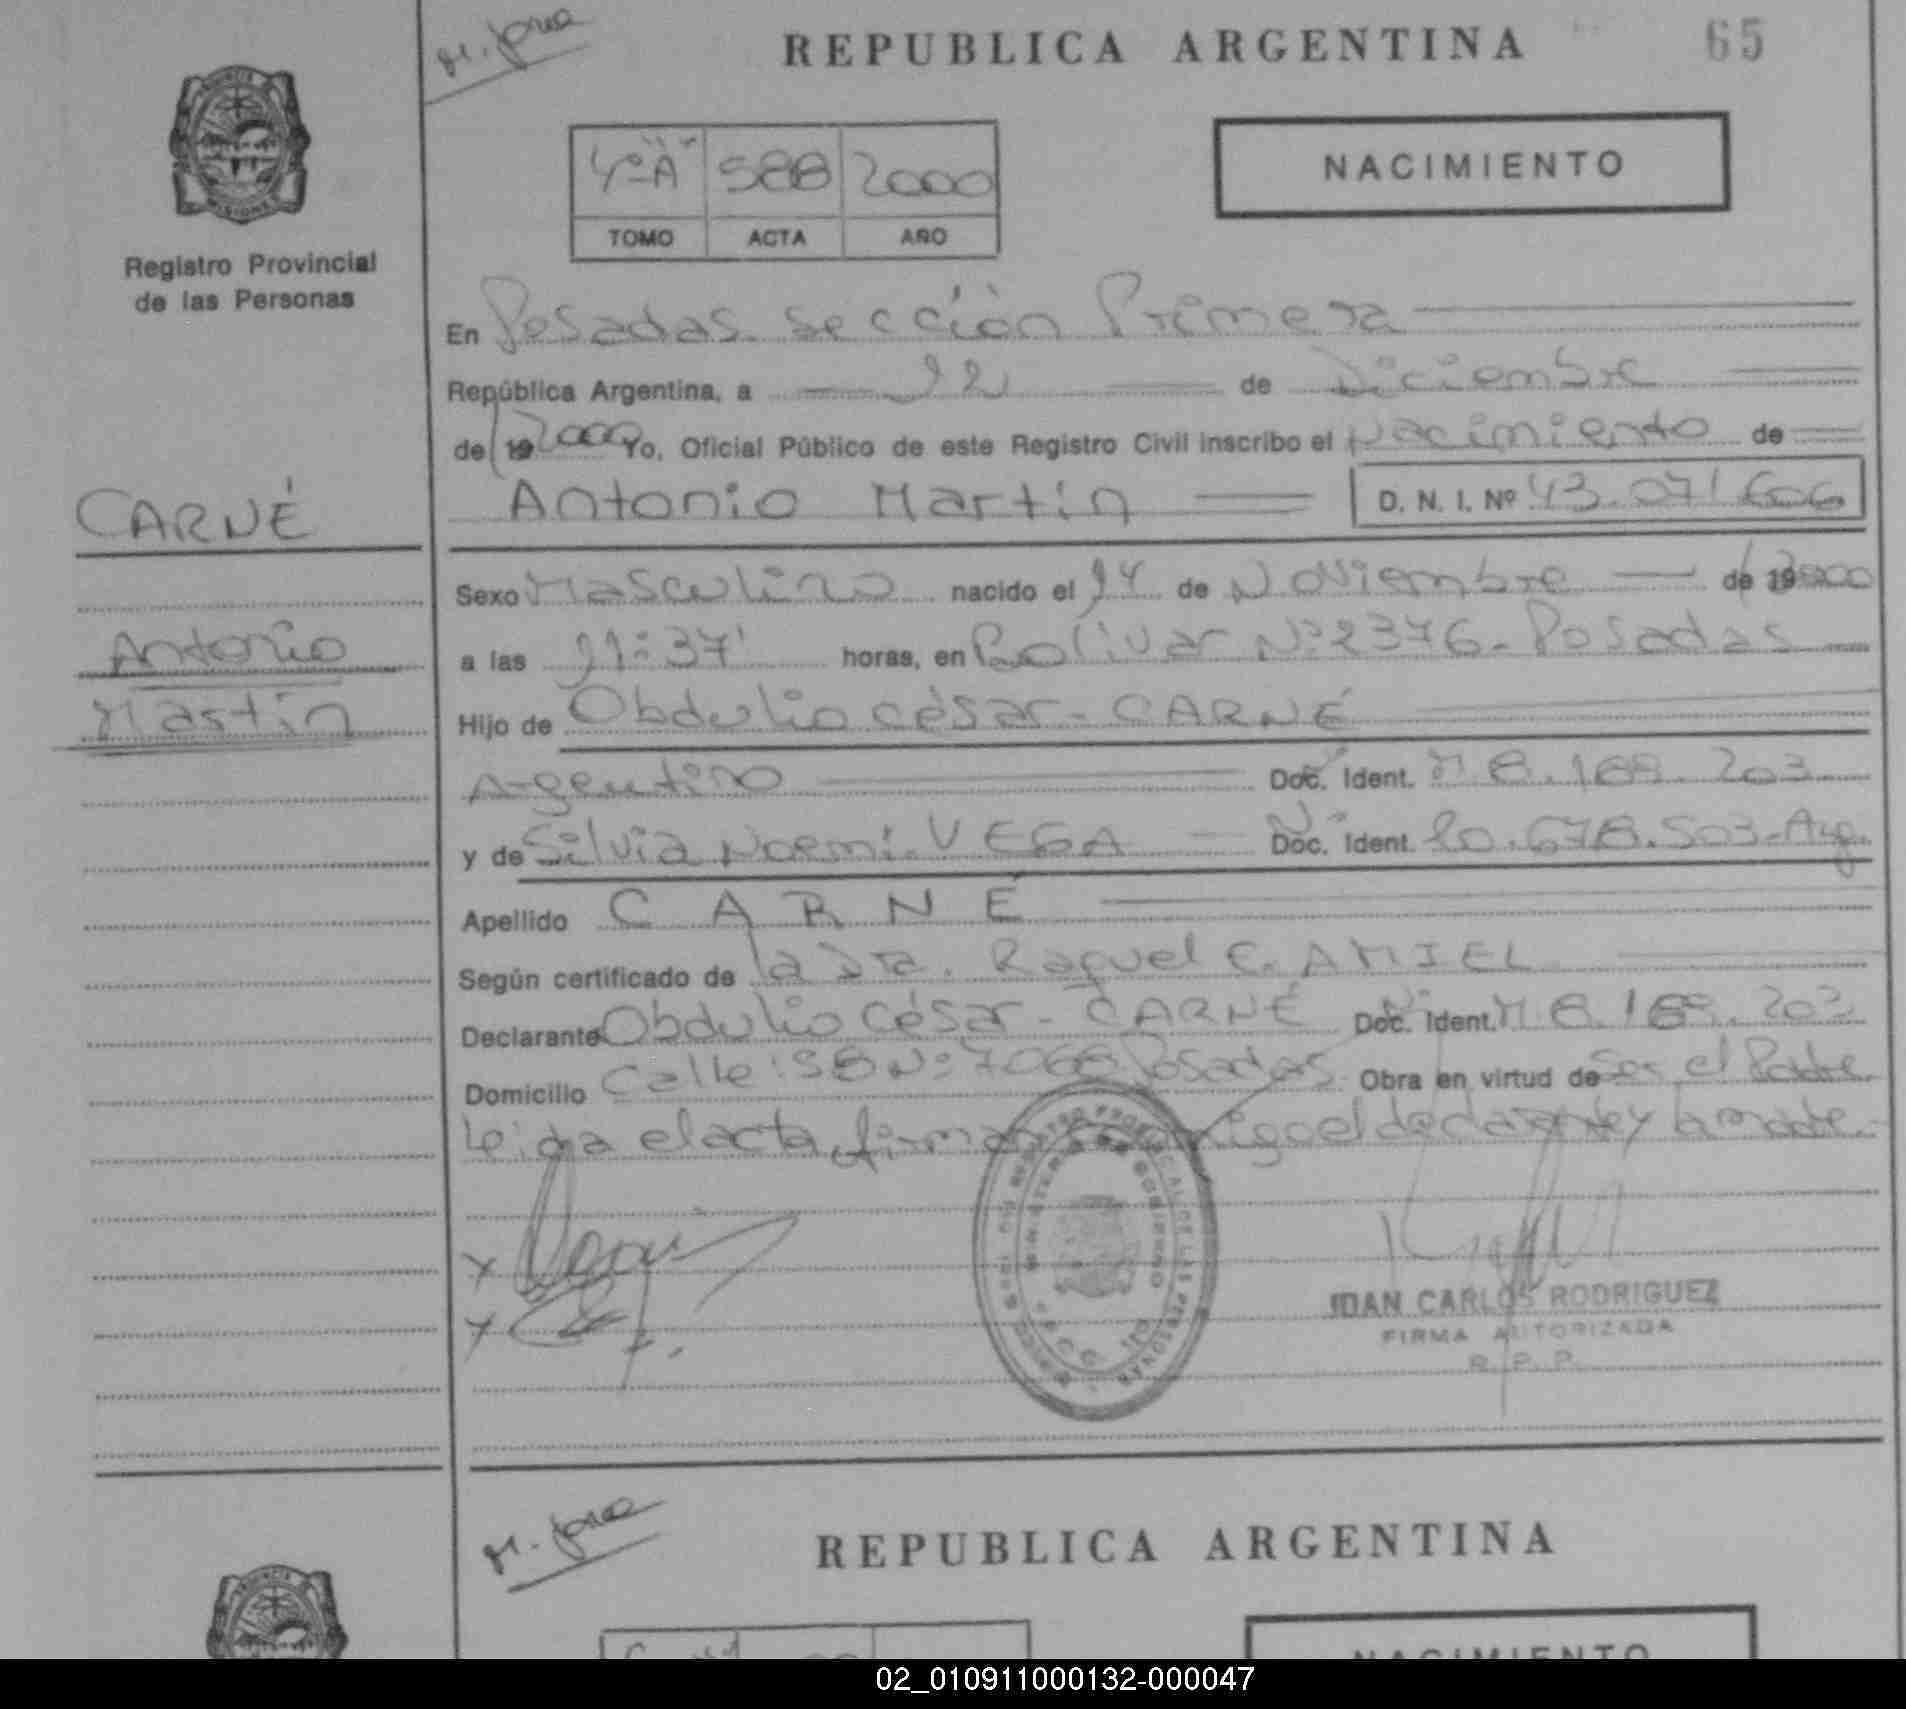 M. Jora
REPUBLICA ARGENTINA
65
4º "A" 588 2000
TOMO ACTA AÑO
NACIMIENTO
Registro Provincial
de las Personas
En Posadas. Sección Primera
República Argentina, a 12 de Diciembre
de 19 2000 Yo, Oficial Público de este Registro Civil inscribo el Nacimiento de
Antonio Martín D. N. I. Nº 43.071.606
CARNÉ
Antonio
Martín
Sexo Masculino nacido el 14 de Noviembre de 19 2000
a las 11:37' horas, en Bolivar Nº: 2376 - Posadas
Hijo de Obdulio César - CARNÉ
Argentino Doc. Ident. M 8.189.203
y de Silvia Noemi. VEGA Doc. Ident. 10.678.503 - Arg.
Apellido CARNÉ
Según certificado de la Dra. Raquel C. AMIEL
Declarante Obdulio César - CARNÉ Doc. Ident. M 8.189.203
Domicilio Calle: 98 Nº: 7068 Posadas Obra en virtud de ser el Padre
Leida el acta, firman conmigo el declarante y la madre.-
MINISTERIO DE GOBIERNO
JUAN CARLOS RODRIGUEZ
FIRMA AUTORIZADA
R. P. P.
M. Jora
REPUBLICA ARGENTINA
NACIMIENTO
02_010911000132-000047